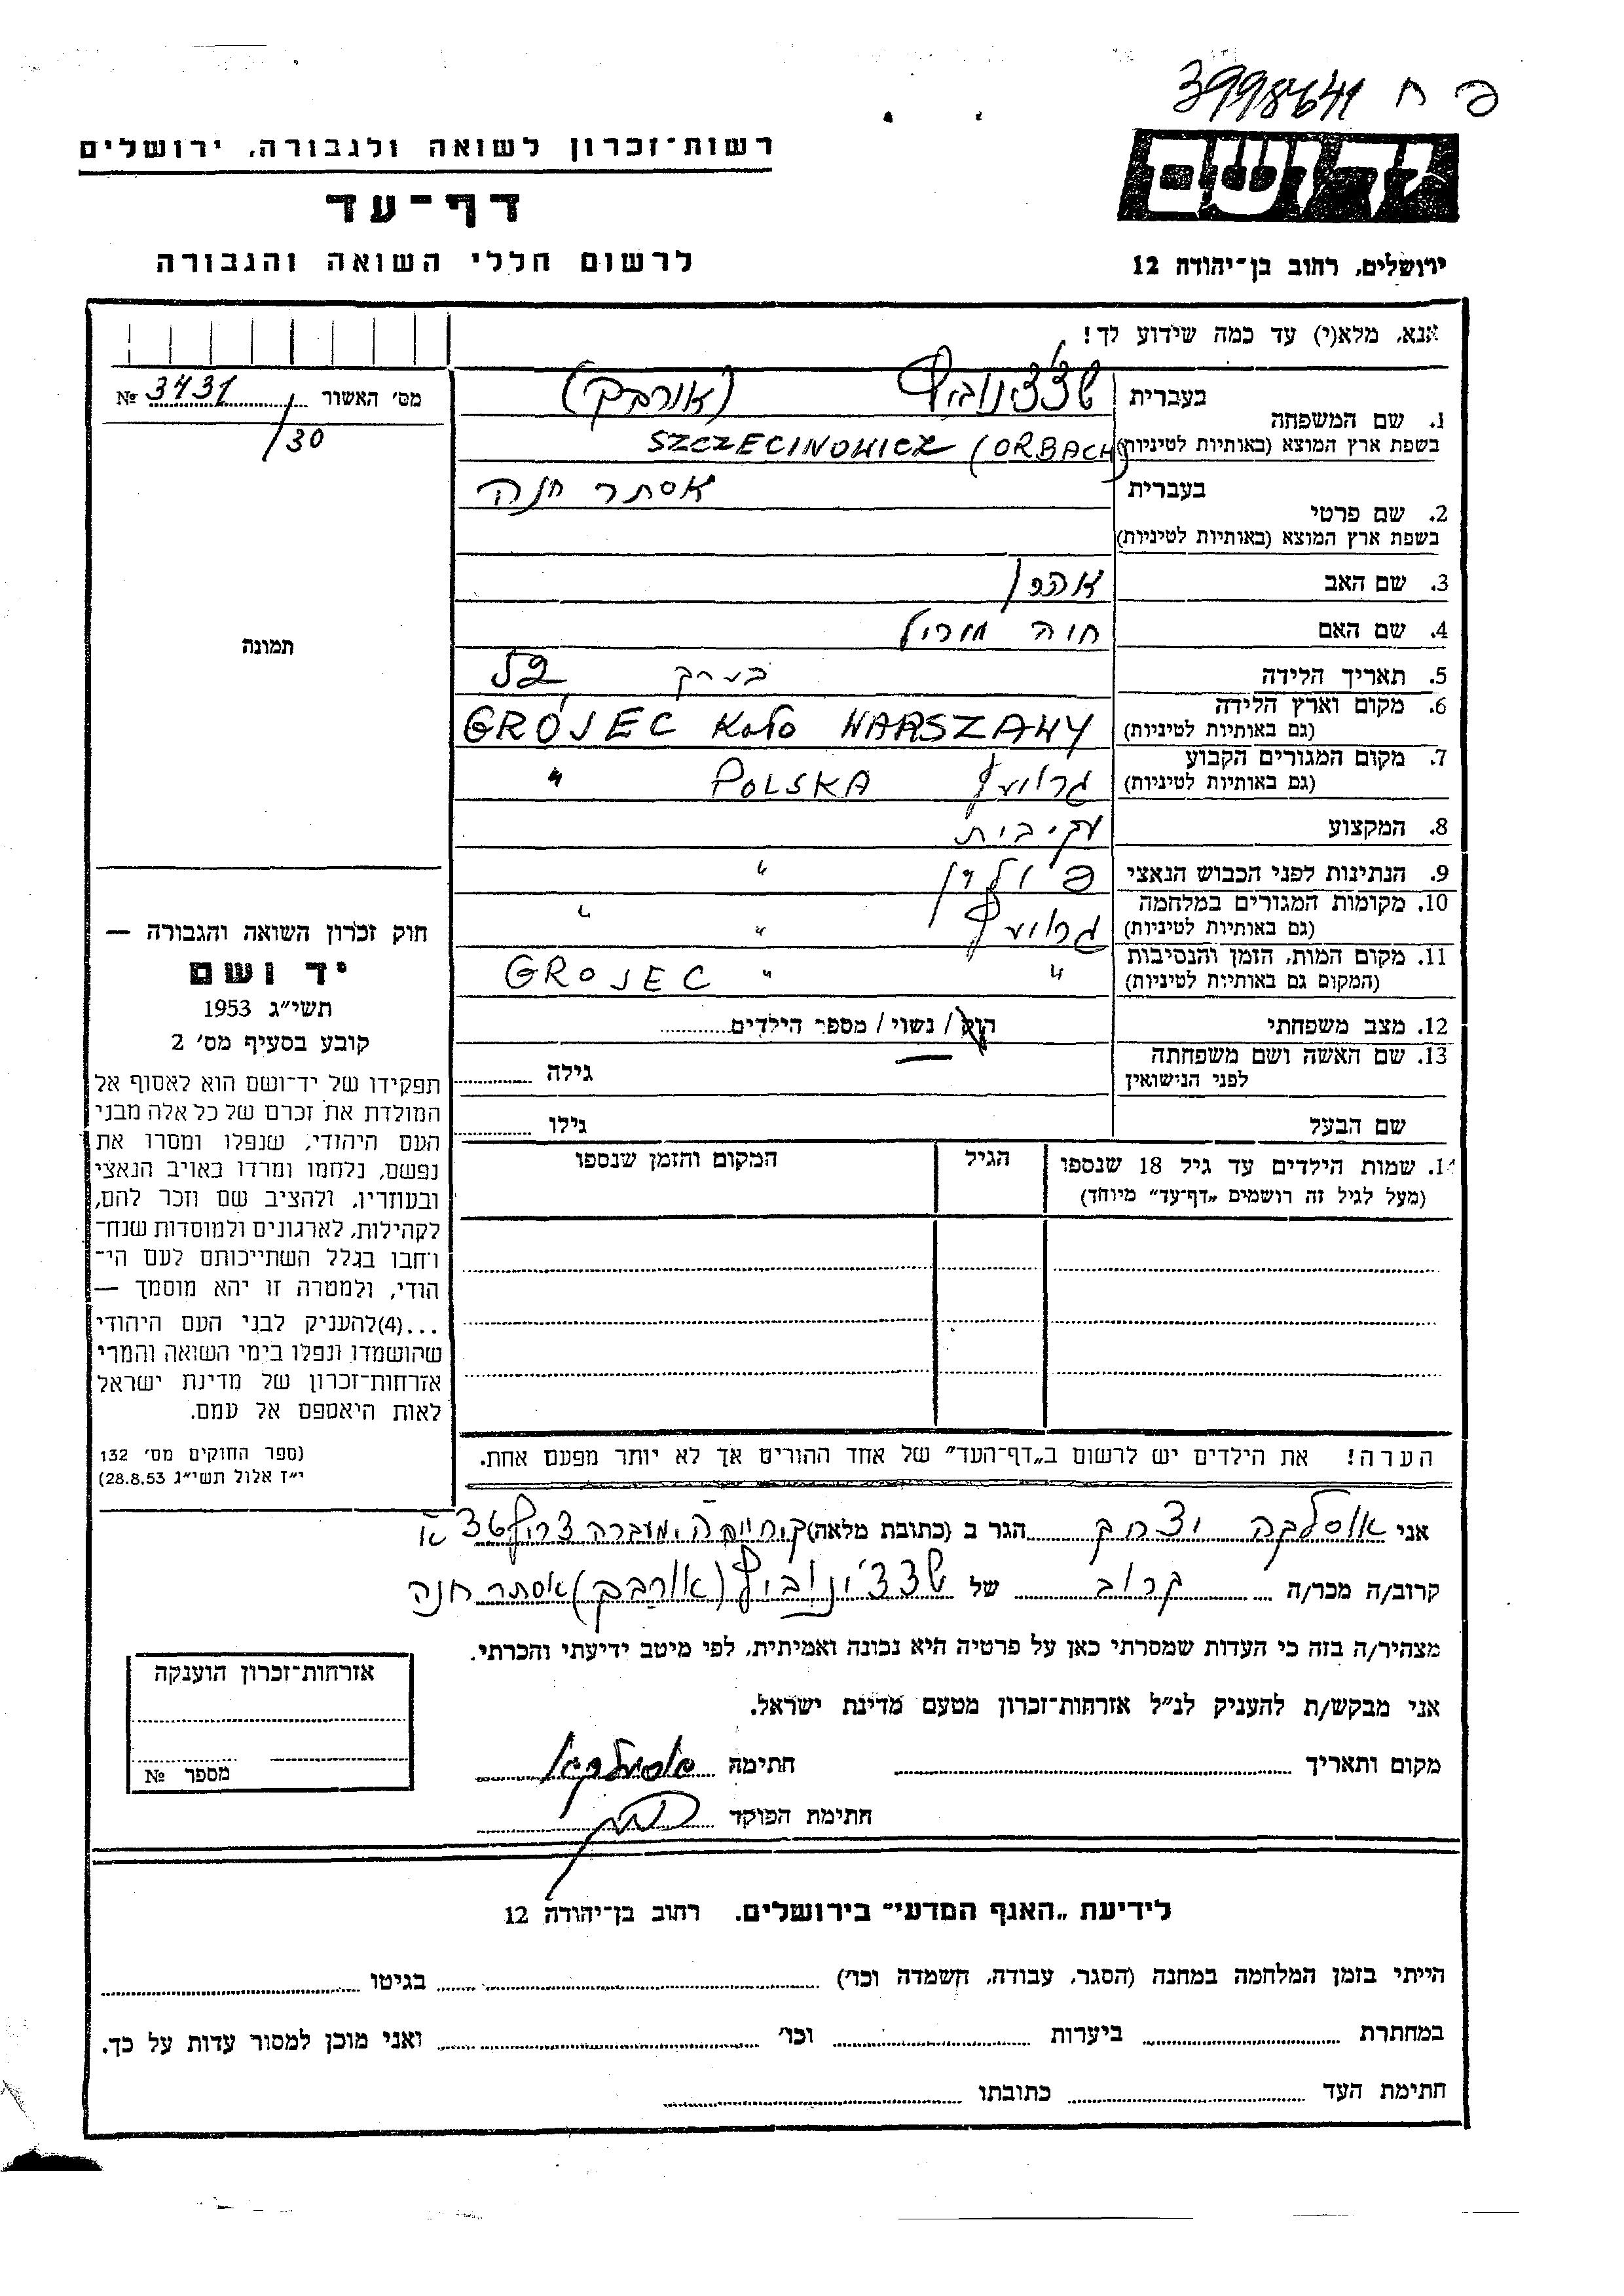 פ ח 3998641
יד ושם
ירושלים, רחוב בן־יהודה 12
רשות־זכרון לשואה ולגבורה, ירושלים
דף־עד
לרשום חללי השואה והגבורה
אנא, מלא(י) עד כמה שידוע לך!
מס׳ האשור 3431 №
/30
תמונה
1. שם המשפחה
בעברית שצצ׳ינוביץ (אורבך)
בשפת ארץ המוצא (באותיות לטיניות) SZCZECINOWICZ (ORBACH)
2. שם פרטי
בעברית אסתר חנה
בשפת ארץ המוצא (באותיות לטיניות)
3. שם האב אהרן
4. שם האם חוה
5. תאריך הלידה בערך 52
6. מקום וארץ הלידה
(גם באותיות לטיניות) GRÓJEC KOŁO WARSZAWY
7. מקום המגורים הקבוע
(גם באותיות לטיניות) גרויעץ POLSKA "
8. המקצוע
9. הנתינות לפני הכבוש הנאצי פולין "
10. מקומות המגורים במלחמה
(גם באותיות לטיניות) גרויעץ " "
11. מקום המות, הזמן והנסיבות
(המקום גם באותיות לטיניות) " " GROJEC
12. מצב משפחתי רווק / נשוי / מספר הילדים
13. שם האשה ושם משפחתה
לפני הנישואין גילה
שם הבעל גילו
14. שמות הילדים עד גיל 18 שנספו
(מעל לגיל זה רושמים „דף־עד״ מיוחד)
הגיל
המקום והזמן שנספו
הערה! את הילדים יש לרשום ב„דף־העד״ של אחד ההורים אך לא יותר מפעם אחת.
חוק זכרון השואה והגבורה —
יד ושם
תשי״ג 1953
קובע בסעיף מס׳ 2
תפקידו של יד־ושם הוא לאסוף אל
המולדת את זכרם של כל אלה מבני
העם היהודי, שנפלו ומסרו את
נפשם, נלחמו ומרדו באויב הנאצי
ובעוזריו, ולהציב שם וזכר להם,
לקהילות, לארגונים ולמוסדות שנח־
רחבו בגלל השתייכותם לעם הי־
הודי, ולמטרה זו יהא מוסמך —
...(4)להעניק לבני העם היהודי
שהושמדו ונפלו בימי השואה והמרי
אזרחות־זכרון של מדינת ישראל
לאות היאספם אל עמם.
(ספר החוקים מס׳ 132
י״ז אלול תשי״ג 28.8.53)
אני יצחק הגר ב (כתובת מלאה) מעברה
קרוב/ה מכר/ה קרוב של שצצ׳ינוביץ (אורבך) אסתר חנה
מצהיר/ה בזה כי העדות שמסרתי כאן על פרטיה היא נכונה ואמיתית, לפי מיטב ידיעתי והכרתי.
אני מבקש/ת להעניק לנ״ל אזרחות־זכרון מטעם מדינת ישראל.
מקום ותאריך חתימה
חתימת הפוקד
אזרחות־זכרון הוענקה
מספר №
לידיעת „האגף המדעי״ בירושלים. רחוב בן־יהודה 12
הייתי בזמן המלחמה במחנה (הסגר, עבודה, השמדה וכו׳) בגיטו
במחתרת ביערות וכו׳ ואני מוכן למסור עדות על כך.
חתימת העד כתובתו